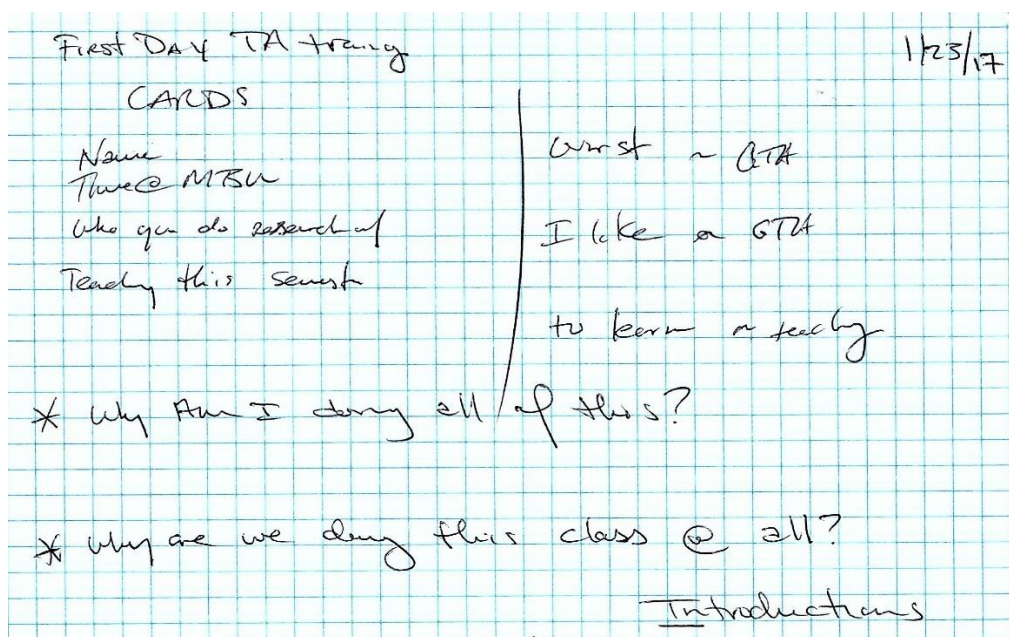 First DAY TA traing
1/23/17
CARDS
Name
Time @ MBU
who you do research w/
Teachy this semest
worst ~ GTA
I like ~ GTA
to learn ~ teachg
* Why Am I doing all of this?
* why are we doing this class @ all?
Introductions